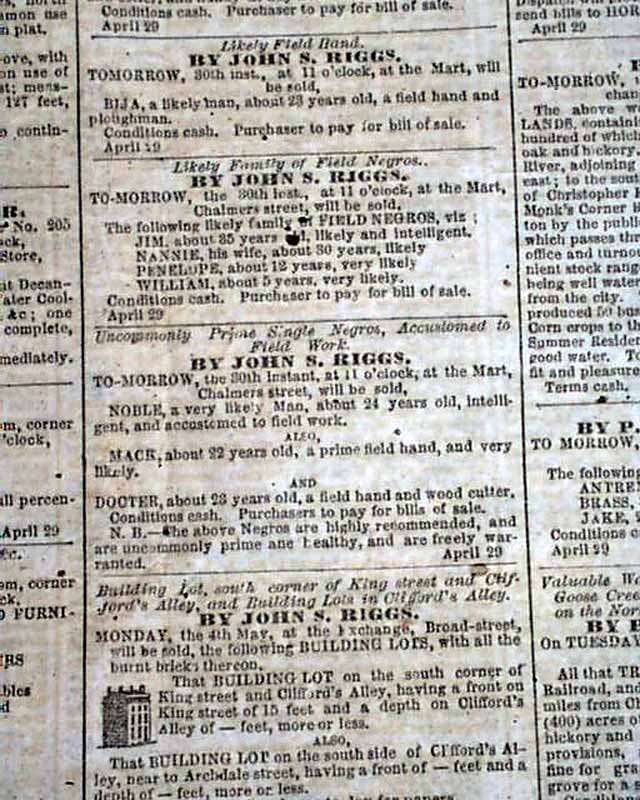 Conditions cash. Purchaser to pay for bill of sale.
April 29
Likely Field Hand.
BY JOHN S. RIGGS.
TOMORROW, 30th inst., at 11 o'clock, at the Mart, will
be sold,
BIJA, a likely man, about 23 years old, a field hand and
ploughman.
Conditions cash. Purchaser to pay for bill of sale.
April 29
Likely Family of Field Negros.
BY JOHN S. RIGGS.
TO-MORROW, the 30th inst., at 11 o'clock, at the Mart,
Chalmers street, will be sold,
The following likely family of FIELD NEGROS, viz:
JIM, about 35 years old, likely and intelligent.
NANNIE, his wife, about 30 years, likely
PENELOPE, about 12 years, very likely
WILLIAM, about 5 years, very likely.
Conditions cash. Purchaser to pay for bill of sale.
April 29
Uncommonly Prime Single Negros, Accustomed to
Field Work.
BY JOHN S. RIGGS.
TO-MORROW, the 30th instant, at 11 o'clock, at the Mart,
Chalmers street, will be sold,
NOBLE, a very likely Man, about 24 years old, intelli-
gent, and accustomed to field work.
ALSO,
MACK, about 22 years old, a prime field hand, and very
likely.
AND
DOCTER, about 23 years old, a field hand and wood cutter.
Conditions cash. Purchasers to pay for bills of sale.
N. B.—The above Negros are highly recommended, and
are uncommonly prime and healthy, and are freely war-
ranted.
April 29
Building Lot, south corner of King street and Clif-
ford's Alley, and Building Lots in Clifford's Alley.
BY JOHN S. RIGGS.
MONDAY, the 4th May, at the Exchange, Broad-street,
will be sold, the following BUILDING LOTS, with all the
burnt bricks thereon.
That BUILDING LOT on the south corner of
King street and Clifford's Alley, having a front on
King street of 15 feet and a depth on Clifford's
Alley of — feet, more or less.
ALSO,
That BUILDING LOT on the south side of Clifford's Al-
ley, near to Archdale street, having a front of — feet and a
depth of — feet, more or less.
send bills to
April 29
TO-MORROW,
The above
LANDS,
hundred of which
oak and hickory.
River, adjoining
east; to the south
of Christopher
Monk's Corner
ton by the public
which passes
office and turnout
nient stock range
being well water
from the city.
produced 50
Corn crops to the
Summer
good water.
fit and pleasure
Terms cash.
BY P.
TO MORROW,
The following
BRASS,
JAKE,
Conditions
April 29
Valuable
Goose Creek
on the
BY
On TUESDAY
All that
Railroad, and
miles from
(400) acres of
hickory and
provisions,
fine for
grove for a
on plat.
ove, with
on use of
127 feet,
contin-
No. 205
Store,
Decan-
Cool-
&c; one
complete,
mediately.
corner
o'clock,
all percen-
April 29
&c.
corner
FURNI-